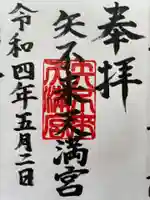 奉拝
矢不来天満宮
令和四年五月二日